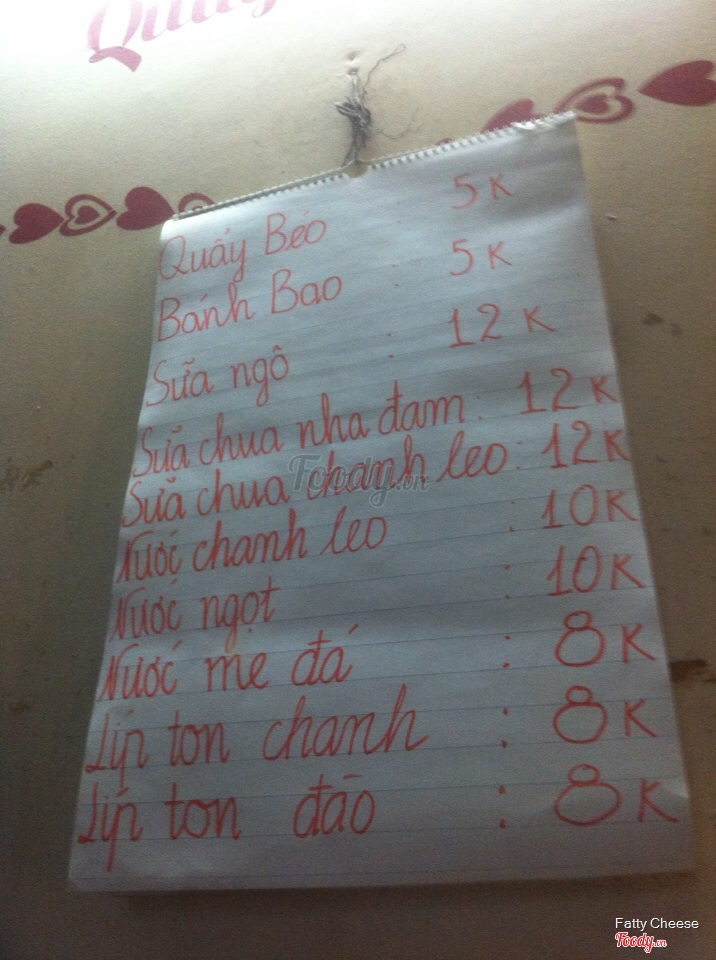 Quẩy Béo : 5K
Bánh Bao : 5K
Sữa ngô : 12K
Sữa chua nha đam : 12K
Sữa chua chanh leo : 12K
Nước chanh leo : 10K
Nước ngọt : 10K
Nước me đá : 8K
Líp ton chanh : 8K
Líp ton đào : 8K
Foody.vn
Fatty Cheese
Foody.vn